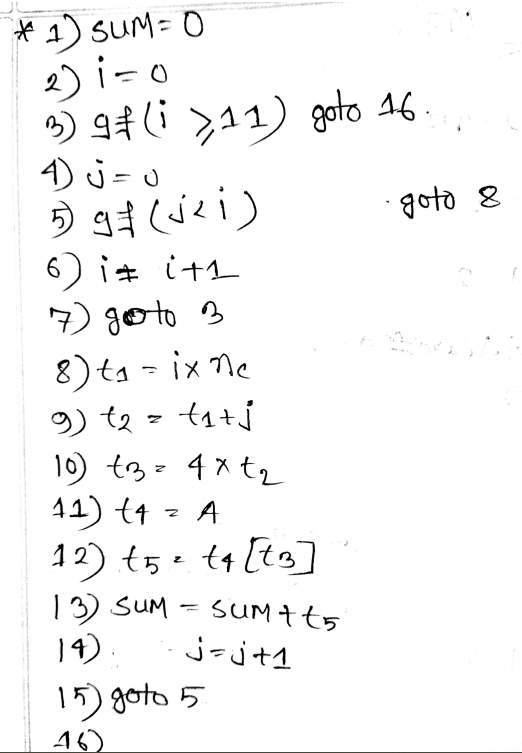 * 1) SUM = 0
2) i = 0
3) if (i ≥ 11) goto 16.
4) j = 0
5) if (j < i) goto 8
6) i = i+1
7) goto 3
8) t1 = i x nc
9) t2 = t1+j
10) t3 = 4 x t2
11) t4 = A
12) t5 = t4 [t3]
13) SUM = SUM + t5
14). j=j+1
15) goto 5
16)